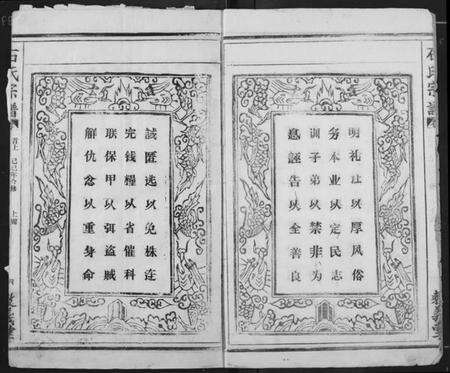 石氏宗譜
明礼让以厚风俗
务本业以定民志
训子弟以禁非为
息誣告以全善良
誡匿逃以免株连
完钱糧以省催科
联保甲以弭盗贼
解仇忿以重身命
石氏宗譜